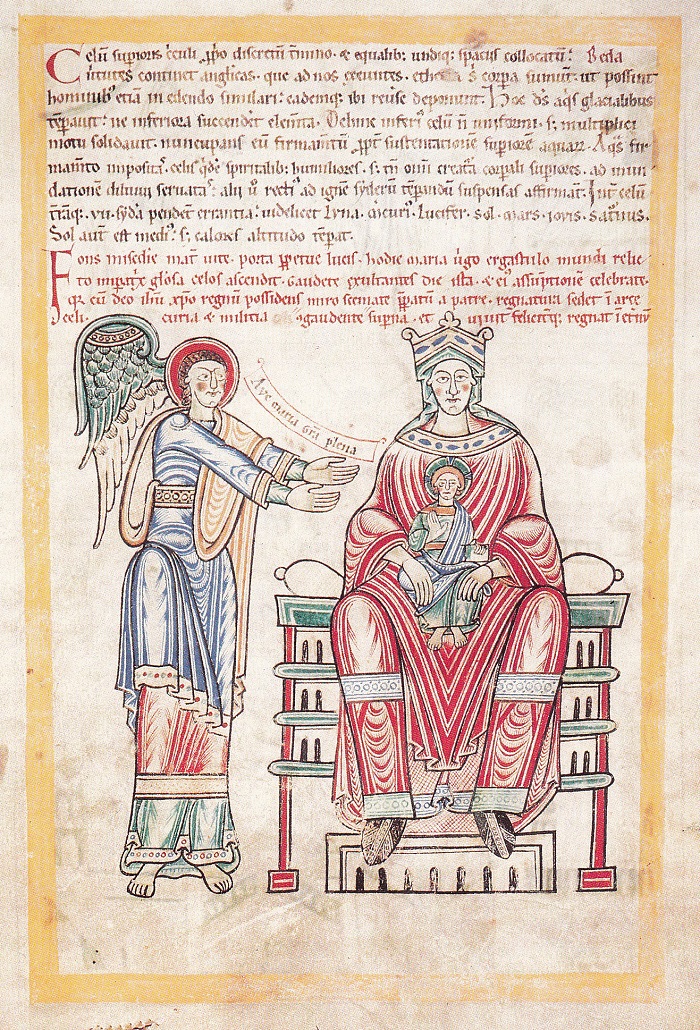 Celū supioris cculi ꝓpo discretū tmino· & equalib; undiq; spacus collocatū· Beda
uirtutes continet anglicas· que ad nos exeuntes· ethe s corpa sumūt· ut possint
hominib; etiā in edendo similari· eademq; ibi reuse deponunt· Hoc ds aq̄s glacialibus
tēpauit· ne inferiora succendet elemta· Dehinc inferi celū n̄ uniformi· s; multiplici
motu solidauit· nuncupans eū firmamtū ꝓpt sustentatione supiorē aquarꝝ· Aq̄s fir
mamto impositas· celis q̄de spiritalib; humiliores· s; tn̄ omi creata corpali supiores· ad inun
datione diluuii seruatas· alii u recti ad ignē syderū tēpandū suspensas affirmāt· Int celū
trāq;· vii· syda pendent errantia· uidelicet Lyna· m̄curi· Lucifer· Sol· mars· iouis· saturnus·
Sol aut est medi s; calores altitudo tēpat·
Fons misedie mat uite· porta ꝑpetue lucis· hodie maria ūgo ergastulo mundi relic
to impatx glosa celos ascendit· Gaudete exultantes die ista· & ei assūptione celebrate·
q̄ cū deo ihu xpo regnū possidens miro scemate ꝑpatū a patre· regnatura sedet ī arce
celi· curia & militia gaudente supna· et uiuit feliciterq; regnat ī etnū
Aue maria Grā plena